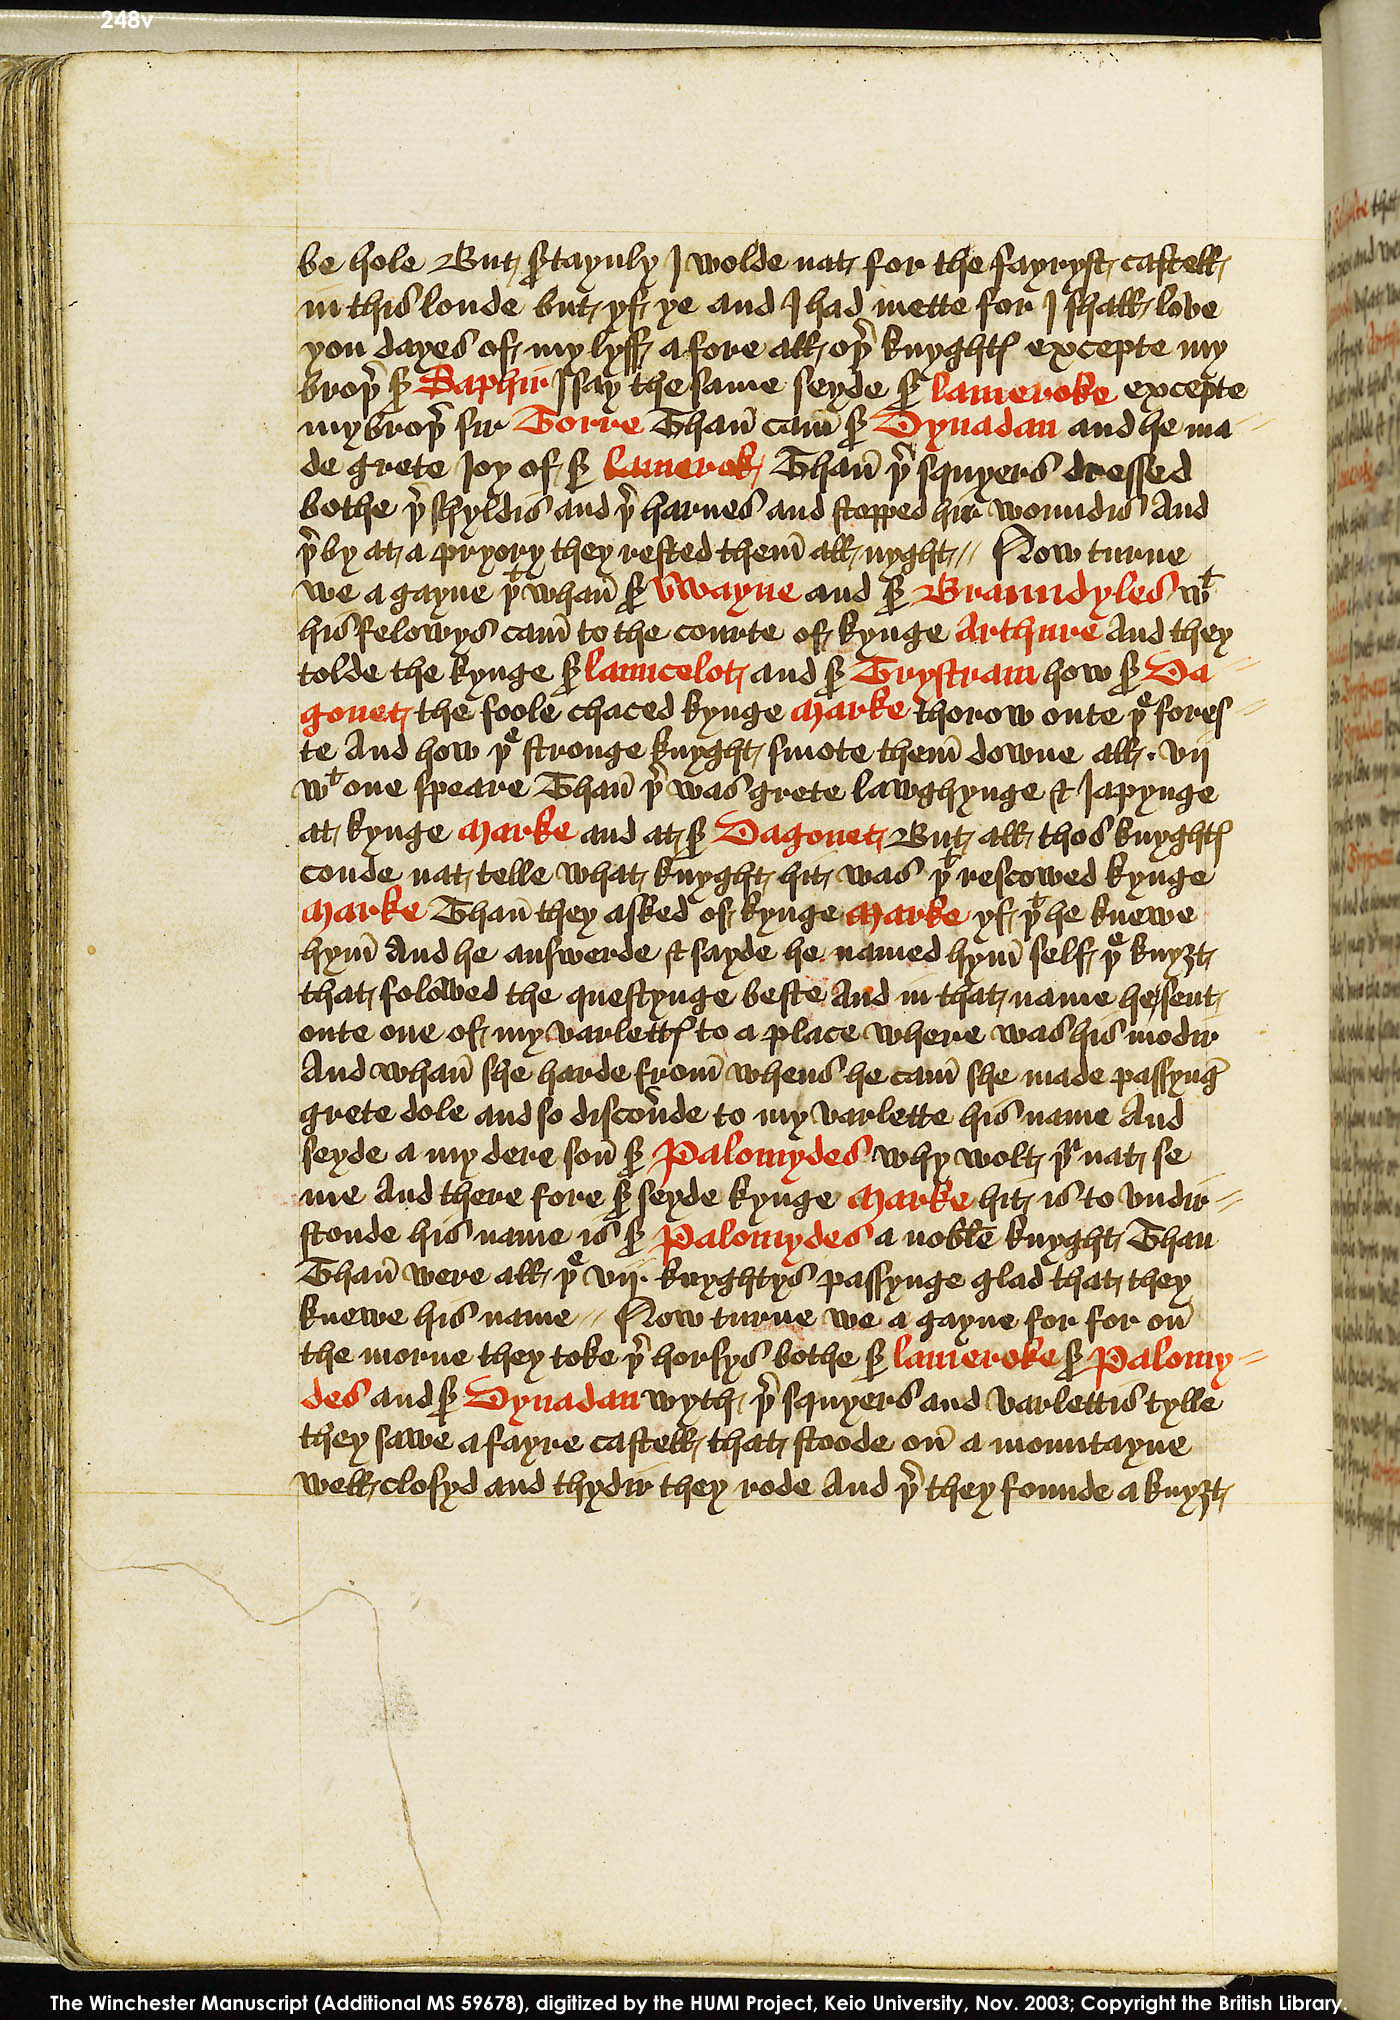 248v
be hole But s͛taynly I wolde nat for the fayryst castell
in this londe but yf ye and I had mette for I shall love
you dayes of my lyff a fore all oþ͛ knyghtꝭ excepte my
broþ͛ s͛ Saphir I say the same seyde s͛ lameroke excepte
my broþ͛ sir Torre Than̄ cam̄ s͛ Dynadan and he ma⸗
de grete Joy of s͛ lamerok Than̄ þ͛ squyers dressed
bothe þ͛ shyldis and þ͛ harnes and stopped hir woundis And
þ͛ by at a pryory they rested them̄ all nyght // Now turne
we a gayne þᵗ whan̄ s͛ Vwayne and s͛ Braundyles wᵗ
his felowys cam̄ to the courte of kynge Arthure And they
tolde the kynge s͛ launcelot and s͛ Trystram how s͛ Da⸗
gonet the foole chaced kynge Marke thorow oute þᵉ fores⸗
te And how þᵉ stronge knyght smote them̄ downe all · vii
wᵗ one speare Than̄ þ͛ was grete lawghynge & Japynge
at kynge Marke and at s͛ Dagonet But all thos knyghtꝭ
coude nat telle what knyght hit was þᵗ rescowed kynge
Marke Than̄ they asked of kynge Marke yf þᵗ he knewe
hym̄ And he answerde & sayde he named hym̄ self þᵉ knyȝt
that folowed the questynge beste And in that name he sent
oute one of my varlettꝭ to a place where was his modir
And whan̄ she harde from̄ whens he cam̄ she made passynḡ
grete dole and so disco͛de to my varlette his name And
seyde a my dere son̄ s͛ Palomydes why wolt þᵘ nat se
me And there fore s͛ seyde kynge Marke hit is to vndir⸗
stonde his name is s͛ Palomydes a noble knyght Than
Than̄ were all þᵉ vij· knyghtys passynge glad that they
knewe his name // Now turne we a gayne for for on̄
the morne they toke þ͛ horsys bothe s͛ lameroke s͛ Palomy⸗
des and s͛ Dynadan wyth þ͛ squyers and varlettis tylle
they sawe a fayre castell that stoode on̄ a mountayne
well closyd and thydir they rode And þ͛ they founde a knyȝt
The Winchester Manuscript (Additional MS 59678), digitized by the HUMI Project, Keio University, Nov. 2003; Copyright the British Library.